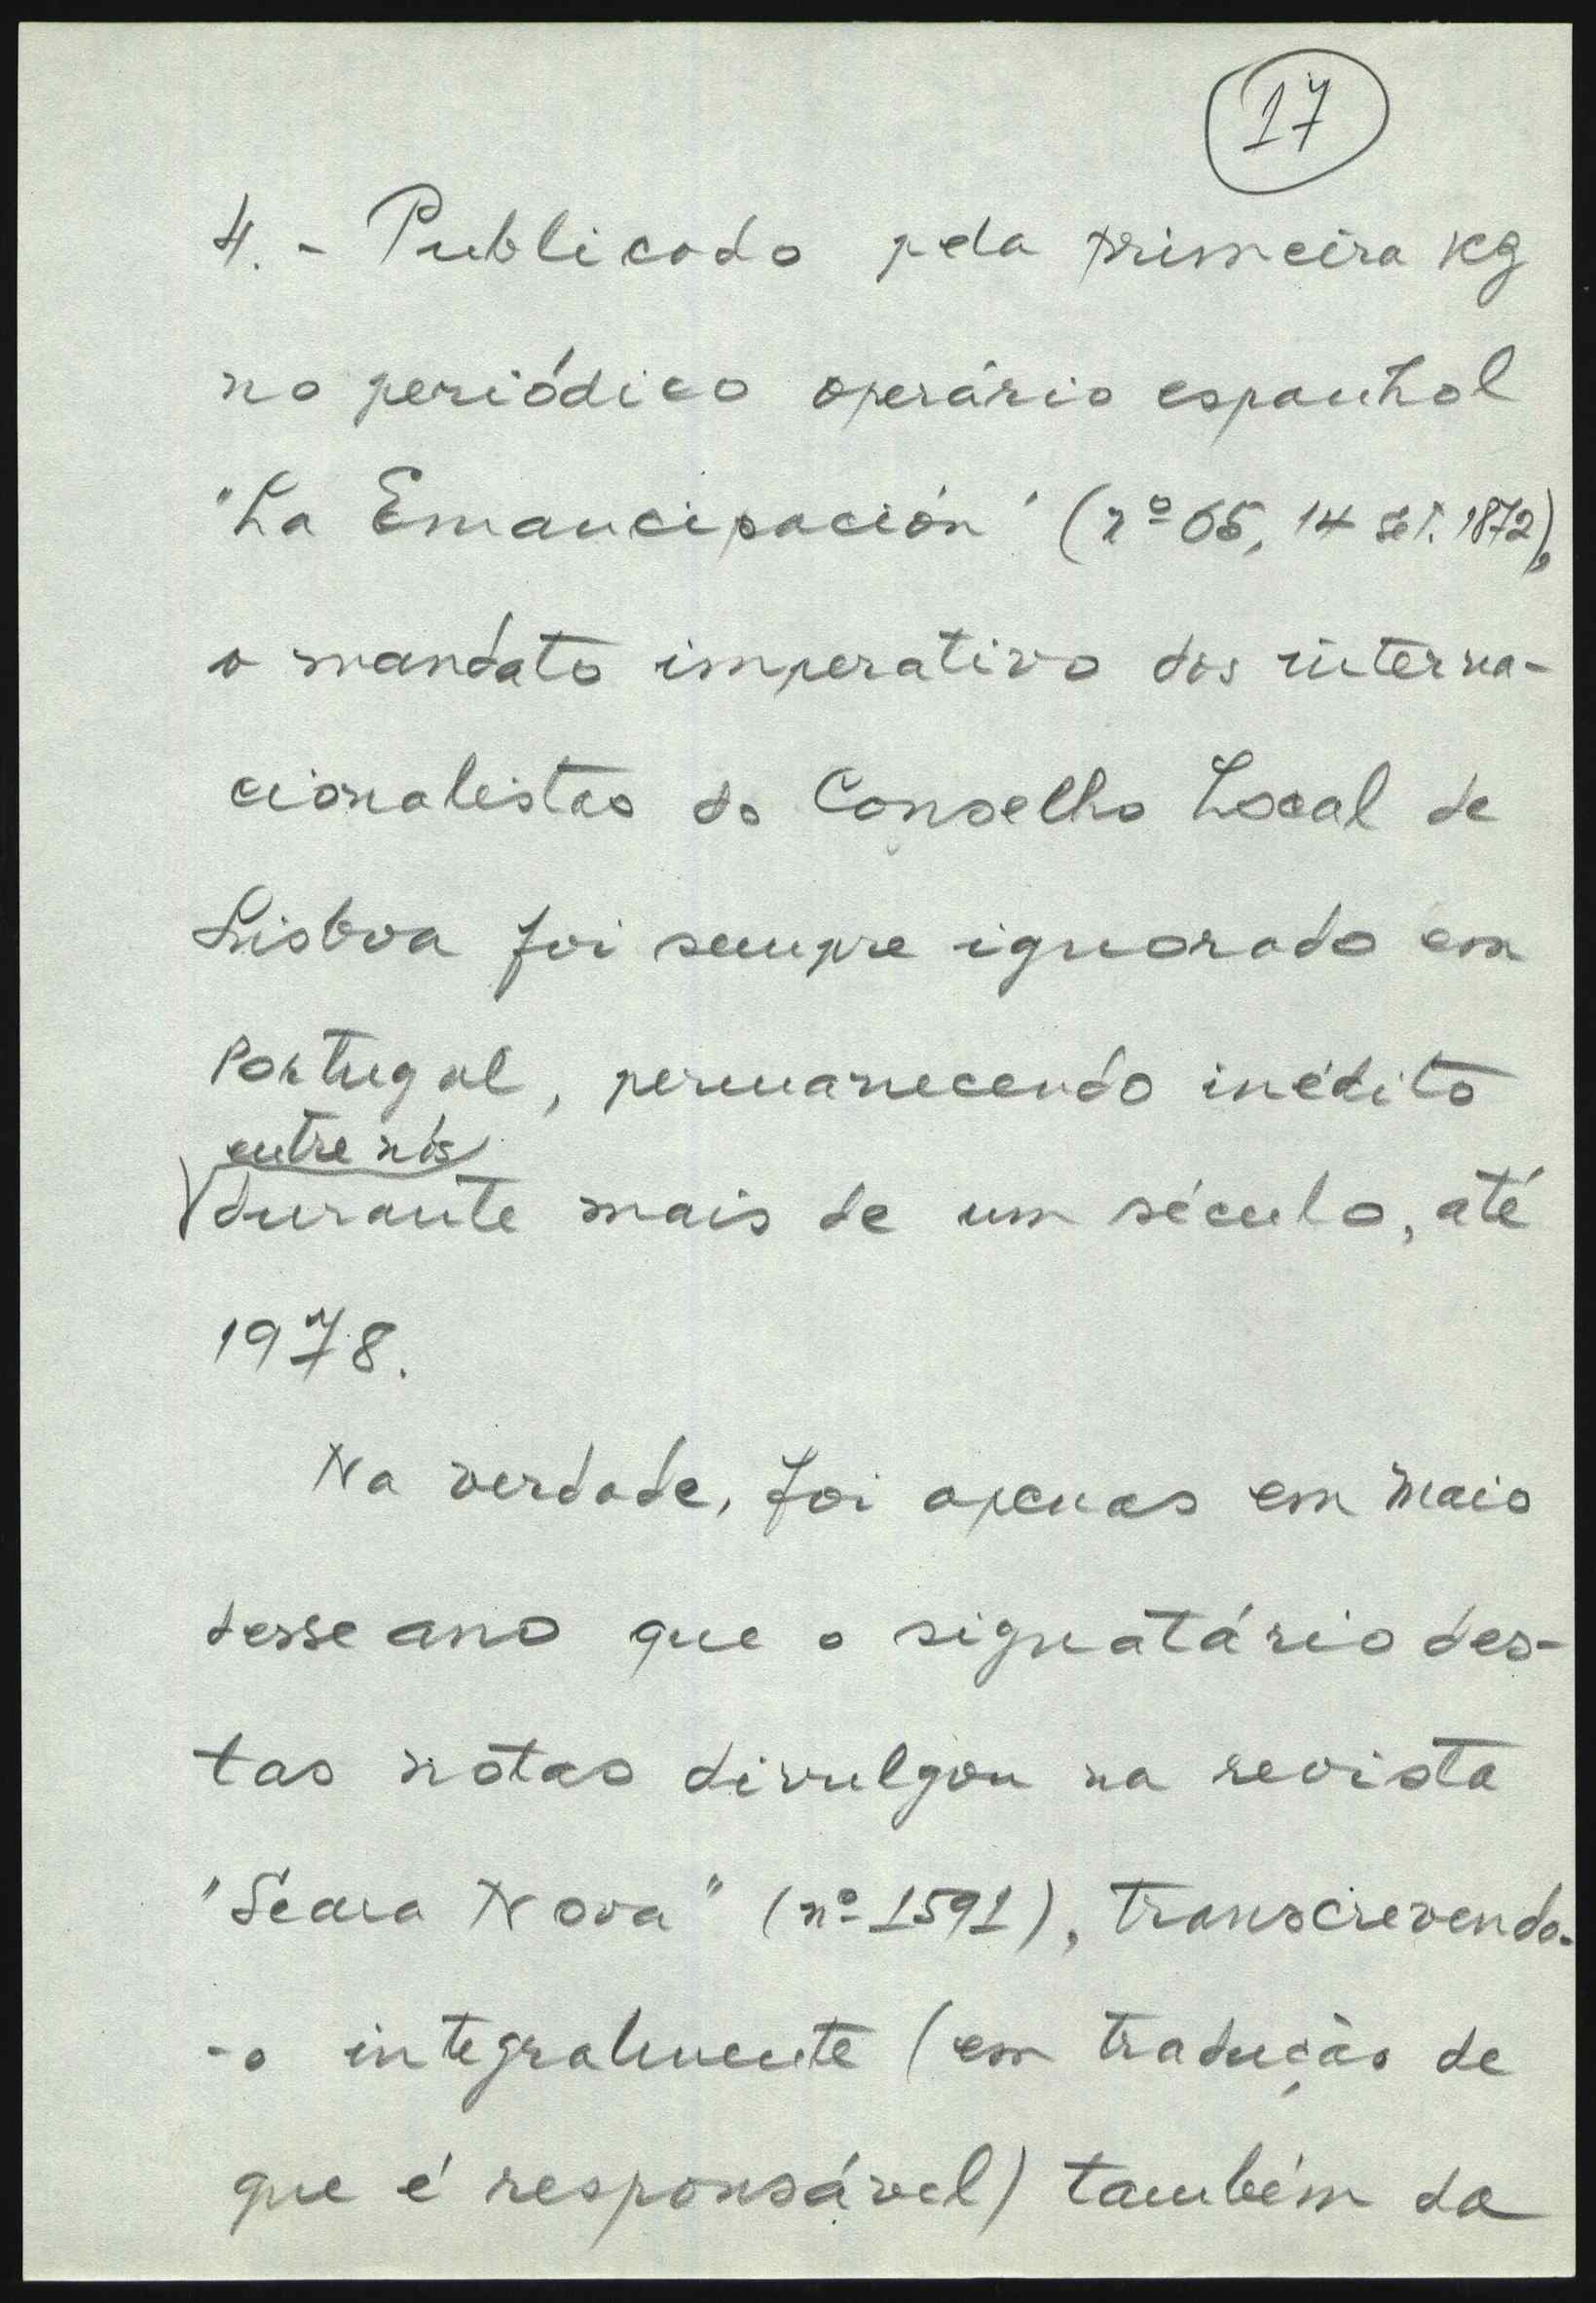 17
4. - Publicado pela primeira vez
no periódico operário espanhol
"La Emancipación" (nº 65, 14 set. 1872),
o mandato imperativo dos interna-
cionalistas do Conselho Local de
Lisboa foi sempre ignorado em
Portugal, permanecendo inédito
entre nós
durante mais de um século, até
1978.
Na verdade, foi apenas em Maio
desse ano que o signatário des-
tas notas divulgou na revista
"Seara Nova" (nº 1591), transcrevendo-
-o integralmente (em tradução de
que é responsável) também da